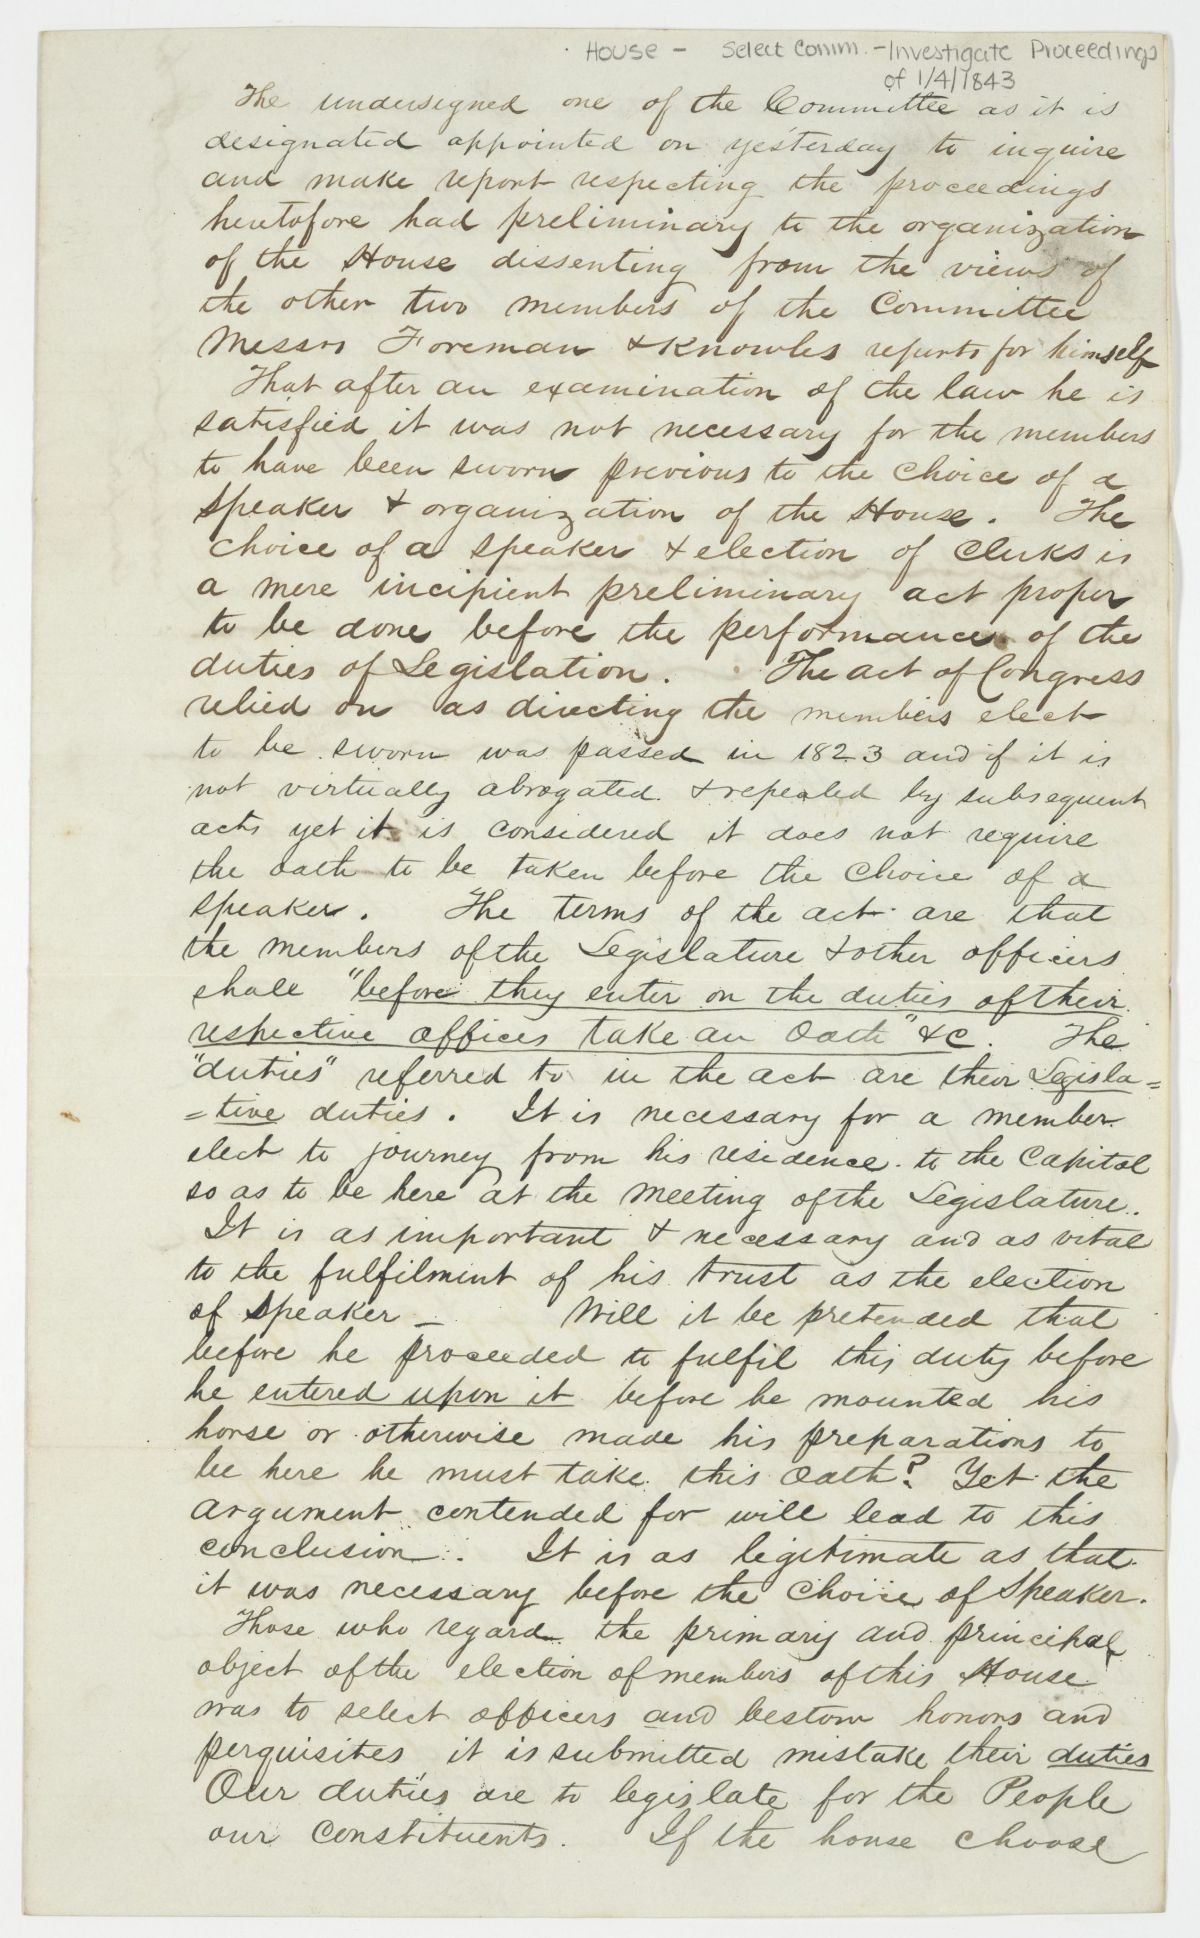 House - Select Comm. - Investigate Proceedings
of 1/4/1843
The undersigned one of the Committee as it is
designated appointed on yesterday to inquire
and make report respecting the proceedings
heretofore had preliminary to the organization
of the House dissenting from the views of
the other two members of the Committee
Messrs Foreman & Knowles reports for himself
That after an examination of the law he is
satisfied it was not necessary for the members
to have been sworn previous to the choice of a
Speaker & organization of the House. The
choice of a speaker & election of Clerks is
a mere incipient preliminary act proper
to be done before the performance of the
duties of Legislation. The act of Congress
relied on as directing the members elect
to be sworn was passed in 1823 and if it is
not virtually abrogated & repealed by subsequent
acts yet it is considered it does not require
the oath to be taken before the choice of a
Speaker. The terms of the act are that
the members of the Legislature & other officers
shall "before they enter on the duties of their
respective offices take an Oath" &c. The
"duties" referred to in the act are their Legisla=
=tive duties. It is necessary for a member
elect to journey from his residence to the Capitol
so as to be here at the meeting of the Legislature.
It is as important & necessary and as vital
to the fulfilment of his trust as the election
of Speaker - Will it be pretended that
before he proceeded to fulfil this duty before
he entered upon it before he mounted his
horse or otherwise made his preparations to
be here he must take this Oath? Yet the
argument contended for will lead to this
conclusion. It is as legitimate as that
it was necessary before the choice of Speaker.
Those who regard the primary and principal
object of the election of members of this House
was to select officers and bestow honors and
perquisites it is submitted mistake their duties
Our duties are to legislate for the People
our constituents. If the house choose